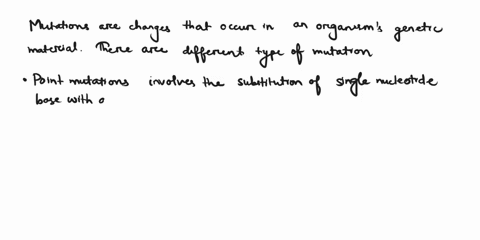 Mutations are changes that occur in an organism's genetic
material. There are different type of mutation
• Point mutations involves the substitution of single nucleotide
base with o